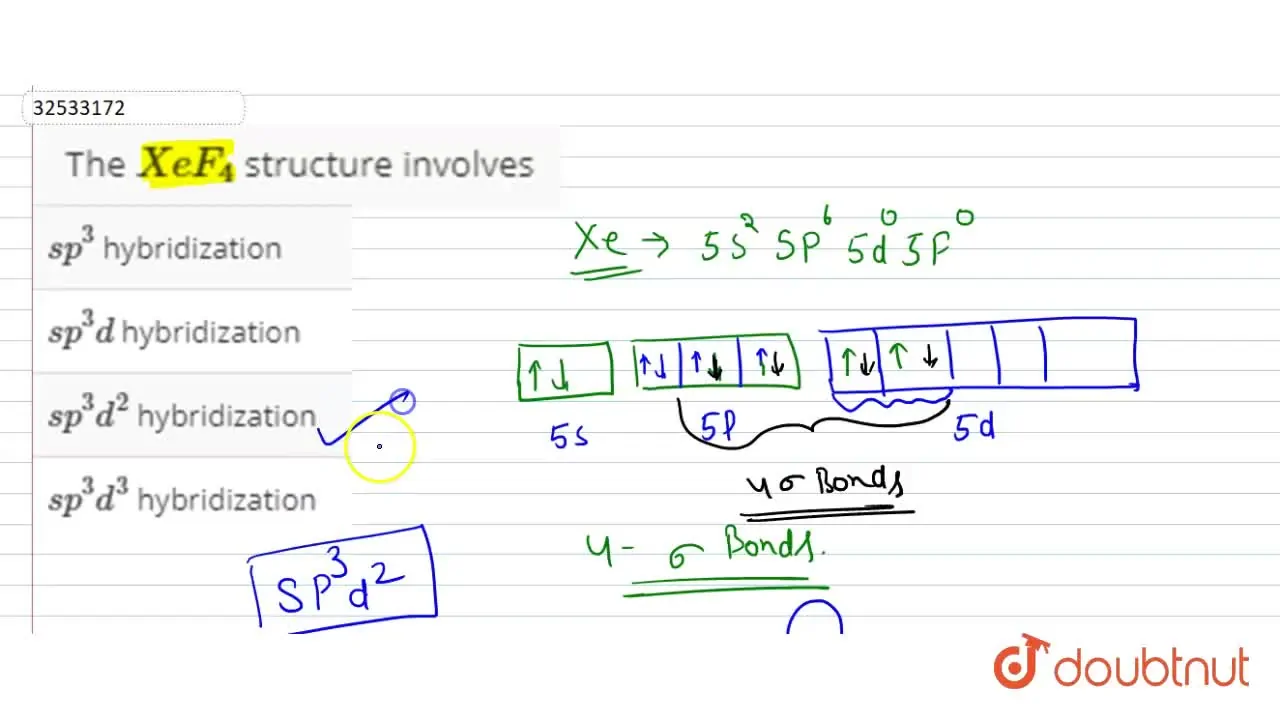 32533172
The XeF₄ structure involves
sp³ hybridization
sp³d hybridization
sp³d² hybridization
sp³d³ hybridization
Xe → 5s² 5p⁶ 5d⁰ 5f⁰
↑↓ ↑↓ ↑↓ ↑↓ ↑↓ ↑↓
5s 5p 5d
4σ Bonds
4- σ Bonds.
SP³d²
doubtnut